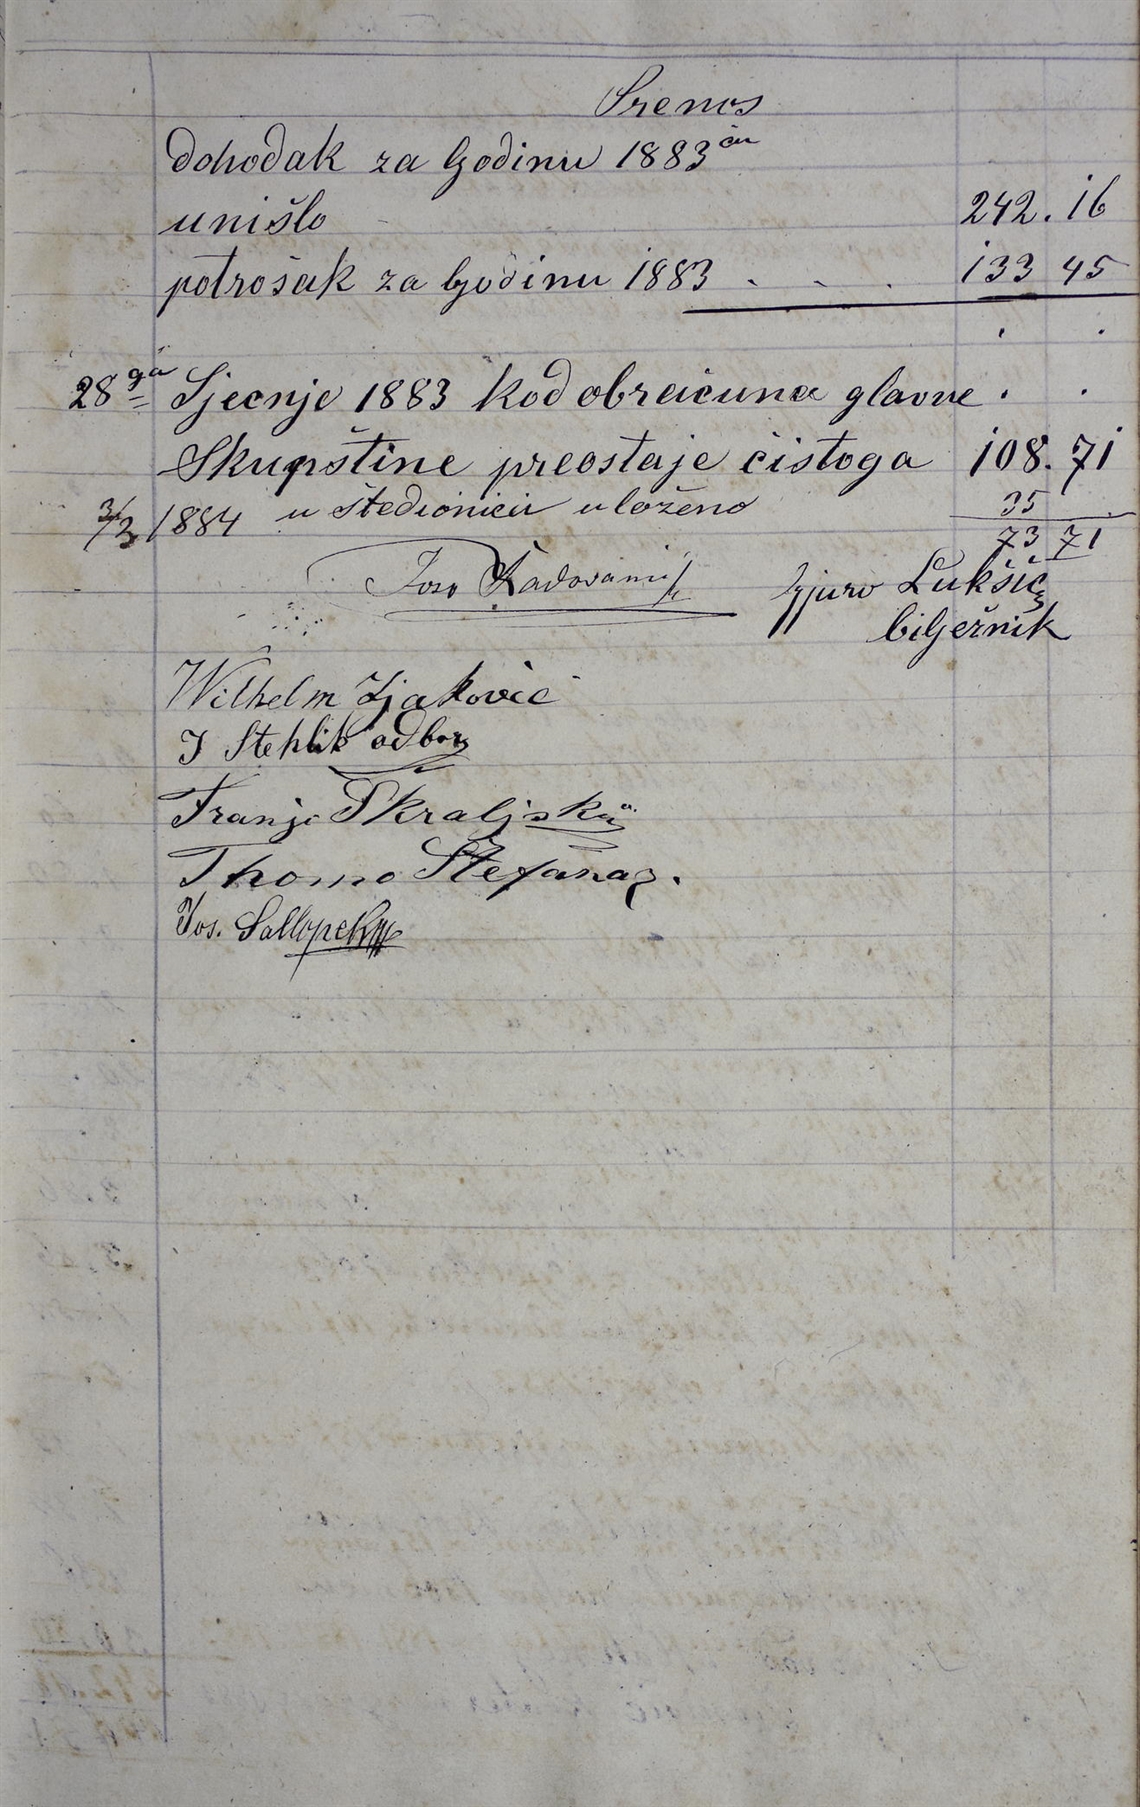 Prenos
dohodak za Godinu 1883ću
unišlo 242. 16
potrošak za Godinu 1883 . . . 133 45
28ga Sječnje 1883 kod obračuna glavne
Skupštine preostaje čistoga 108. 71
3/3 1884 u štedionicu uloženo 35
73 71
Joso Radovanić Gjuro Lukšić
bilježnik
Wilhelm Ljaković
J Stehlik odbor
Franjo Škraljski
Thomo Štefanaz.
Jos. Sallopek